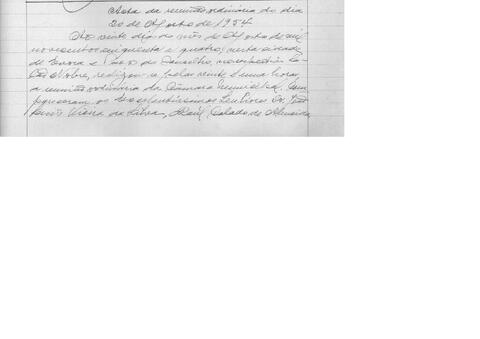 Acta da reunião ordinária do dia
20 de Agosto de 1954
Aos vinte dias do mês de Agosto de mil
novecentos cinquenta e quatro, nesta cidade
de Evora e Paços do Concelho, no respectivo Sa-
lão Nobre, realizou-se pelas vinte e uma horas,
a reunião ordinária da Câmara Municipal. Com-
pareceram os Excelentíssimos Senhores Dr.
Luis Vieira da Silva, Raúl Calado de Almeida